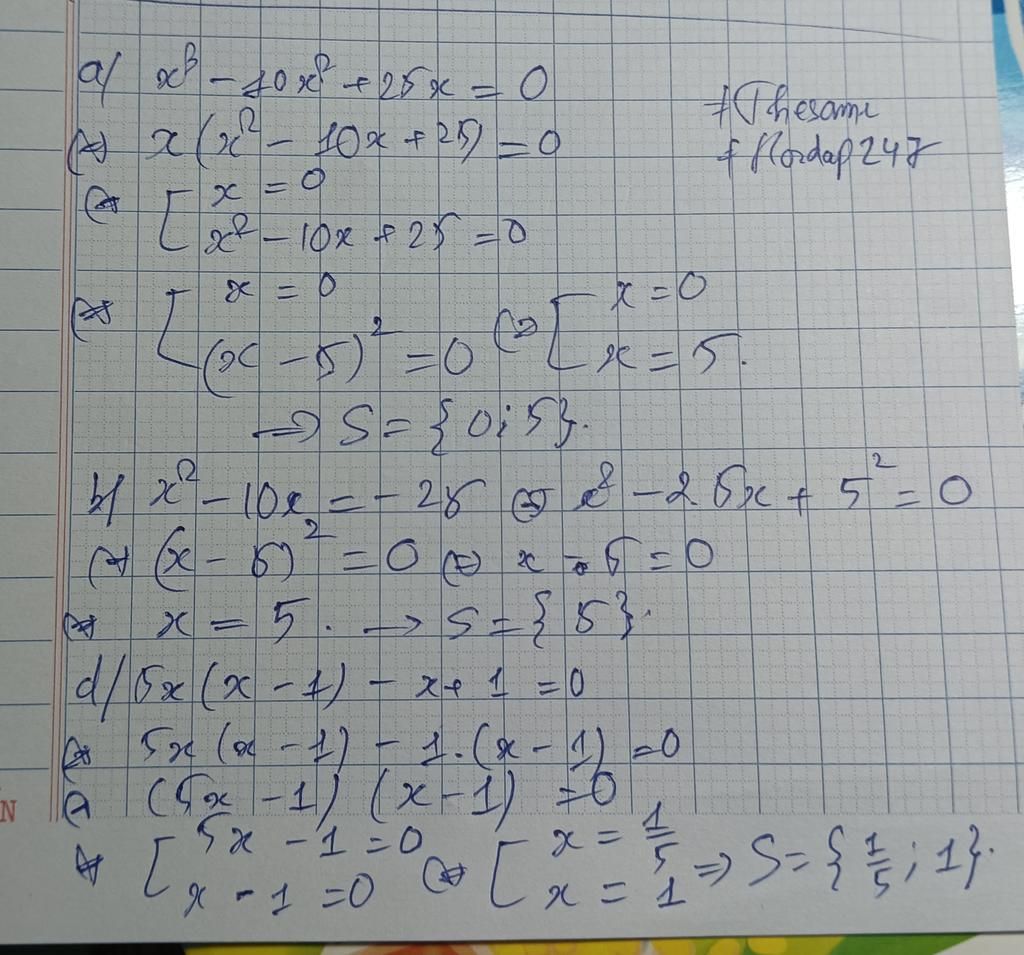 a/ x³ - 10x² + 25x = 0
⇔ x(x² - 10x + 25) = 0
⇔ [ x = 0
x² - 10x + 25 = 0
⇔ [ x = 0
(x - 5)² = 0 ⇔ [ x = 0
x = 5.
⇒ S = {0; 5}.
b/ x² - 10x = -25 ⇔ x² - 2.5x + 5² = 0
⇔ (x - 5)² = 0 ⇔ x - 5 = 0
⇔ x = 5. → S = {5}.
d/ 5x(x - 1) - x + 1 = 0
⇔ 5x(x - 1) - 1.(x - 1) = 0
⇔ (5x - 1)(x - 1) = 0
⇔ [ 5x - 1 = 0
x - 1 = 0 ⇔ [ x = 1/5
x = 1 ⇒ S = {1/5; 1}.